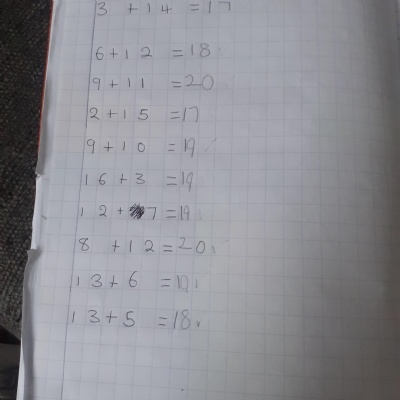 3 + 14 = 17
6 + 12 = 18
9 + 11 = 20
2 + 15 = 17
9 + 10 = 19
16 + 3 = 19
12 + 7 = 19
8 + 12 = 20
13 + 6 = 19
13 + 5 = 18